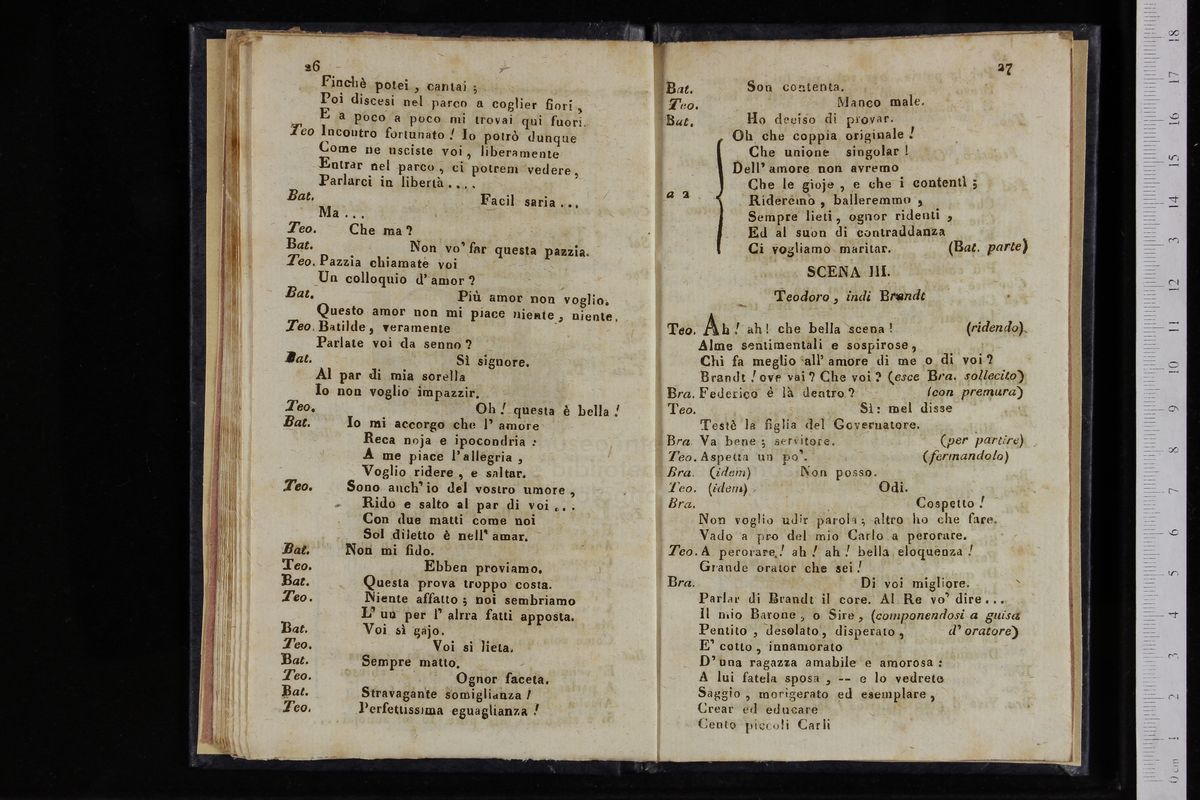 26
Finchè potei , cantai ;
Poi discesi nel parco a coglier fiori ,
E a poco a poco mi trovai qui fuori.
Teo Incontro fortunato ! Io potrò dunque
Come ne usciste voi , liberamente
Entrar nel parco , ci potrem vedere ,
Parlarci in libertà . . . .
Bat. Facil saria . . .
Ma . . .
Teo. Che ma ?
Bat. Non vo' far questa pazzia.
Teo. Pazzia chiamate voi
Un colloquio d' amor ?
Bat. Più amor non voglio.
Questo amor non mi piace niente , niente.
Teo. Batilde , veramente
Parlate voi da senno ?
Bat. Sì signore.
Al par di mia sorella
Io non voglio impazzir.
Teo. Oh ! questa è bella !
Bat. Io mi accorgo che l' amore
Reca noja e ipocondria :
A me piace l' allegria ,
Voglio ridere , e saltar.
Teo. Sono anch' io del vostro umore ,
Rido e salto al par di voi . . .
Con due matti come noi
Sol diletto è nell' amar.
Bat. Non mi fido.
Teo. Ebben proviamo.
Bat. Questa prova troppo costa.
Teo. Niente affatto ; noi sembriamo
L' un per l' alrra fatti apposta.
Bat. Voi sì gajo.
Teo. Voi si lieta.
Bat. Sempre matto.
Teo. Ognor faceta.
Bat. Stravagante somiglianza !
Teo. Perfettissima eguaglianza !
27
Bat. Son contenta.
Teo. Manco male.
Bat. Ho deciso di provar.
Oh che coppia originale !
Che unione singolar !
Dell' amore non avremo
Che le gioje , e che i contenti ;
a 2 Rideremo , balleremmo ,
Sempre lieti , ognor ridenti ,
Ed al suon di contraddanza
Ci vogliamo maritar. (Bat. parte)
SCENA III.
Teodoro , indi Brandt
Teo. Ah ! ah ! che bella scena ! (ridendo).
Alme sentimentali e sospirose ,
Chi fa meglio all' amore di me o di voi ?
Brandt ! ove vai ? Che voi ? (esce Bra. sollecito)
Bra. Federico è là dentro ? (con premura)
Teo. Sì : mel disse
Testè la figlia del Governatore.
Bra Va bene ; servitore. (per partire)
Teo. Aspetta un po'. (fermandolo)
Bra. (idem) Non posso.
Teo. (idem) Odi.
Bra. Cospetto !
Non voglio udir parola ; altro ho che fare.
Vado a pro del mio Carlo a perorare.
Teo. A perorare ! ah ! ah ! bella eloquenza !
Grande orator che sei !
Bra. Di voi migliore.
Parlar di Brandt il core. Al Re vo' dire . . .
Il mio Barone , o Sire , (componendosi a guisa
Pentito , desolato , disperato , d' oratore)
E' cotto , innamorato
D' una ragazza amabile e amorosa :
A lui fatela sposa , -- e lo vedrete
Saggio , morigerato ed esemplare ,
Crear ed educare
Cento piccoli Carli
0 cm 1 2 3 4 5 6 7 8 9 10 11 12 13 14 15 16 17 18